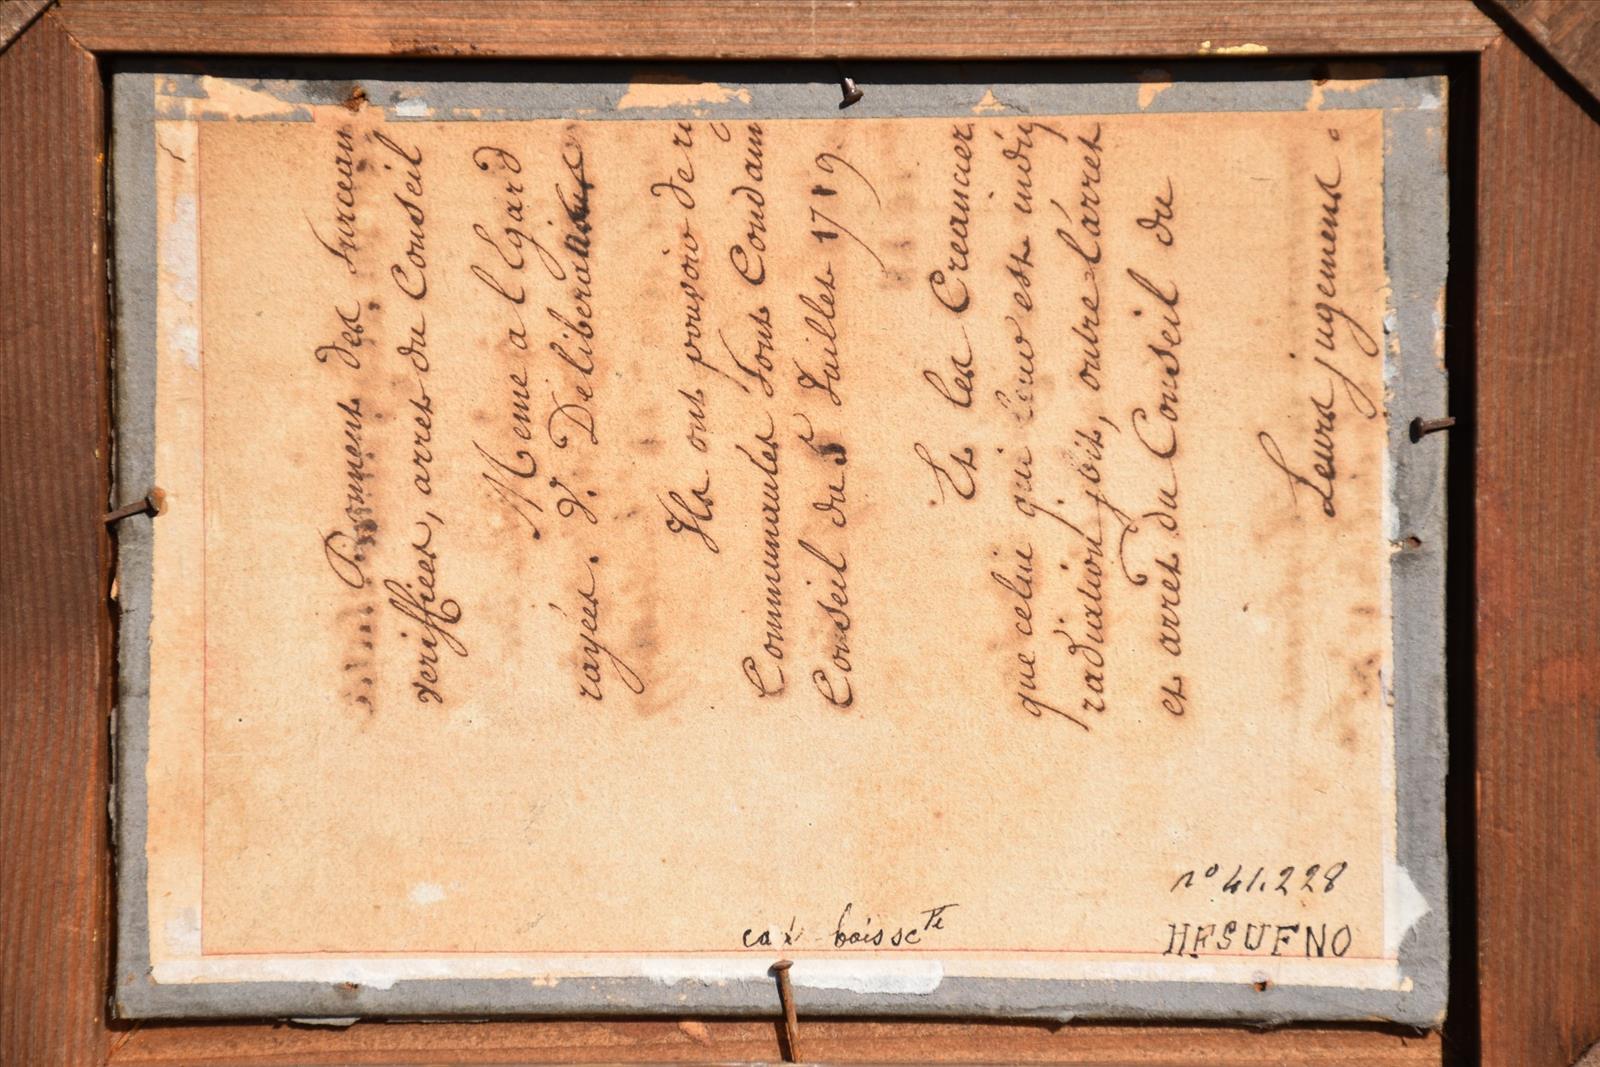 Donnent des surcean
verifficés, arret du Conseil
Meme a l Egard
rayées. V. Deliberations
Ils ont pouvoir de ri
Communautés sont Condam
Conseil du 5 Juillet 1719
Et les Creancier
que celui qui leur est indiq
raduxtion joit, outre l'arret
et arret du Conseil du
Leurs jugemens.
n° 41.228
HFSUFNO